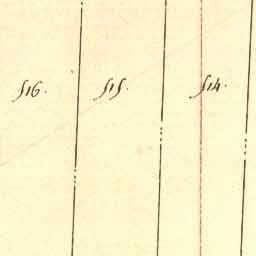 516. 515. 514.